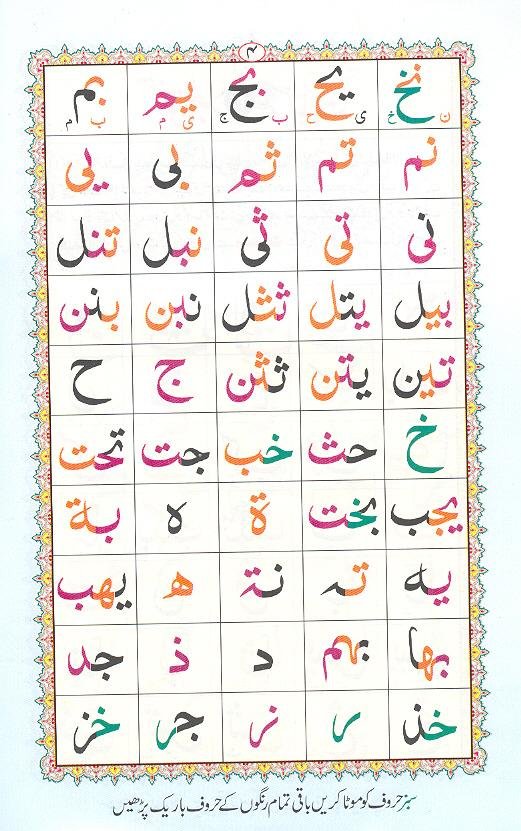 ۴
نخ یح بج یم بم
ن خ ی ح ب ج ی م ب م
نم تم ثم بی یی
نی تی ثی نبل تنل
بیل یتل نثل نبن بنن
تین یتن ثثن ج ح
خ حث خب جت تحت
یجب بخت ة ه بة
یه ته نة ھ یهب
بها بهم د ذ جد
خذ ر نر جر خز
سبز حروف کو موٹا کریں باقی تمام رنگوں کے حروف باریک پڑھیں